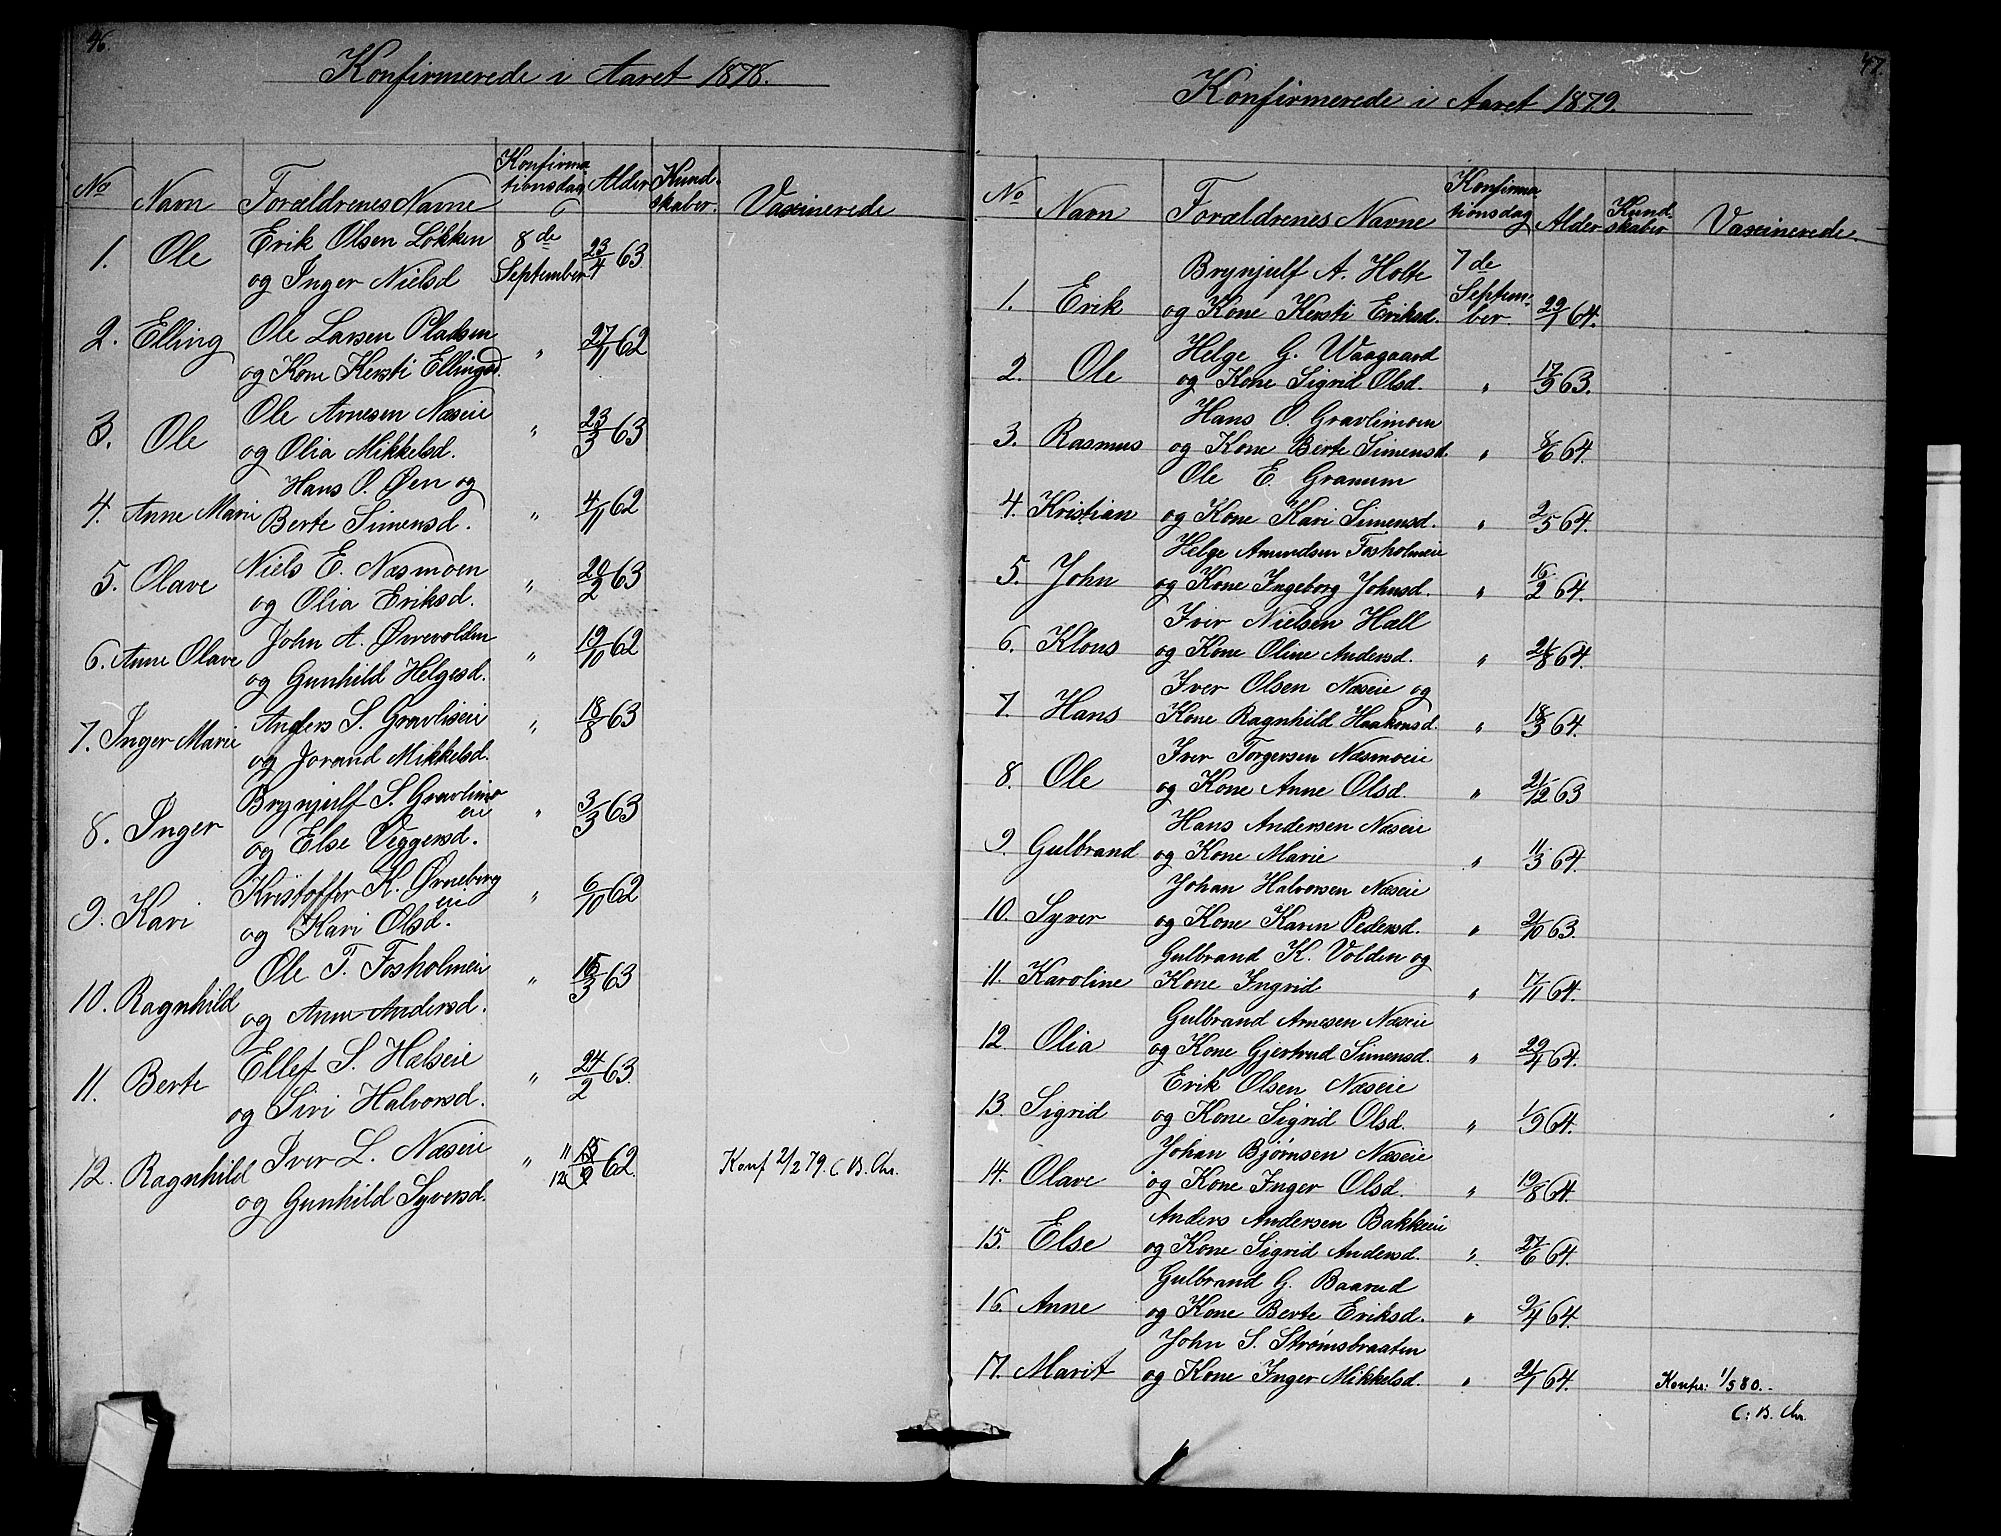 46.
Konfirmerede i Aaret 1878.
No Navn Forældrenes Navne Konfirma tionsdag Alder Kund- skaber. Vaxinerede
1. Ole Erik Olsen Løkken 8de 23/4 63
og Inger Nielsd September
2. Elling Ole Larsen Pladsen " 27/11 62
og Kone Kersti Ellingsd.
3. Ole Ole Arnesen Næseie " 23/3 63
og Olia Mikkelsd.
4. Anne Marie Hans O. Øen og " 4/11 62
Berte Simensd.
5. Olave Niels E. Næsmoen " 20/2 63
og Olia Eriksd.
6. Anne Olave John A. Øvrevolden " 12/10 62
og Gunhild Helgesd.
7. Inger Marie Anders S. Gravliseie " 18/8 63
og Jorand Mikkelsd.
8. Inger Brynjulf S. Gravlimo " 3/3 63
eie
og Else Veggersd.
9. Kari Kristoffer K. Ørneberg " 6/10 62
eie
og Kari Olsd.
10. Ragnhild Ole T. Fosholmeie " /3 63
og Anne Andersd.
11. Berte Ellef S. Hælseie " 24/2 63.
og Siri Halvorsd.
12. Ragnhild Iver L. Næseie " 11/12 62. Konf 2/2 79. C B. Chr.
og Gunhild Syversd.
47.
Konfirmerede i Aaret 1879.
No Navn Forældrenes Navne Konfirma tionsdag Alder Kund- skaber Vaxinerede.
Brynjulf A. Holte 7de
1. Erik og Kone Kersti Eriksd. Septem- ber. 22/1 64.
Helge G. Waagaard
2. Ole og Kone Sigrid Olsd. " 17/9 63.
Hans O. Gravlimoen
3. Rasmus og Kone Berte Simensd. " 8/6 64.
Ole E. Granum
4. Kristian og Kone Kari Simensd. " 2/5 64.
Helge Amundsen Fosholmeie
5. John og Kone Ingeborg Johnsd. " 16/2 64.
Iver Nielsen Hæll
6. Klons og Kone Oline Andersd. " 24/8 64.
Iver Olsen Næseie og
7. Hans Kone Ragnhild Haakonsd. " 18/3 64.
Iver Torgersen Næsmoeie
8. Ole og Kone Anne Olsd. " 21/12 63
Hans Andersen Næseie
9. Gulbrand og Kone Marie " 11/3 64.
Johan Halvorsen Næseie
10. Syver og Kone Karin Pedersd. " 2/10 63.
Gulbrand K. Volden og
11. Karoline Kone Ingrid " 7/11 64.
Gulbrand Arnesen Næseie
12. Olia og Kone Gjertrud Simensd. " 29/4 64.
Erik Olsen Næseie
13. Sigrid og Kone Sigrid Olsd. " 1/9 64.
Johan Bjørnsen Næseie
14. Olave og Kone Inger Olsd. " 19/8 64.
Anders Andersen Bakkeeie
15. Else og Kone Sigrid Andersd. " 27/6 64.
Gulbrand G. Baarud
16. Anne og Kone Berte Eriksd. " 9/4 64.
John S. Strømsbraaten
17. Marit og Kone Inger Mikkelsd. " 21/1 64. Konfr: 1/5 80.
C: B. Chr.